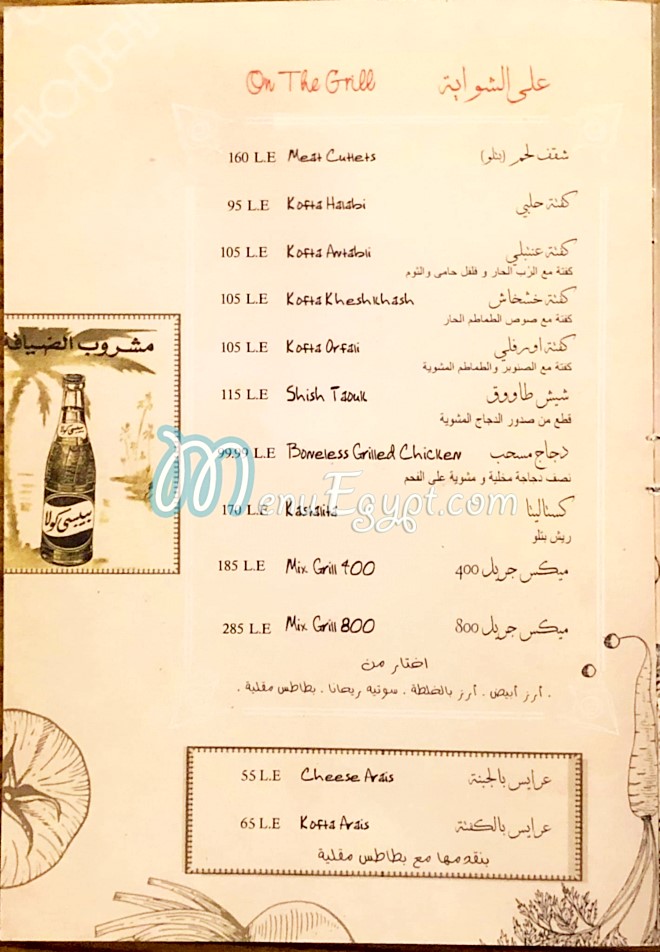 On The Grill على الشواية
160 L.E Meat Cutlets شقف لحم (بتلو)
95 L.E Kofta Halabi كفتة حلبي
105 L.E Kofta Antabli كفتة عنتبلي
كفتة مع الرُب الحار و فلفل حامى والثوم
105 L.E Kofta Kheshkhash كفتة خشخاش
كفتة مع صوص الطماطم الحار
105 L.E Kofta Orfali كفتة اورفلي
كفتة مع الصنوبر والطماطم المشوية
115 L.E Shish Taouk شيش طاووق
قطع من صدور الدجاج المشوية
99.99 L.E Boneless Grilled Chicken دجاج مسحب
نصف دجاجة مخلية و مشوية على الفحم
170 L.E Kastalita كستاليتا
ريش بتلو
185 L.E Mix Grill 400 ميكس جريل 400
285 L.E Mix Grill 800 ميكس جريل 800
اختار من
. أرز أبيض . أرز بالخلطة . سوتيه ريحانا . بطاطس مقلية .
55 L.E Cheese Arais عرايس بالجبنة
65 L.E Kofta Arais عرايس بالكفتة
بنقدمها مع بطاطس مقلية
مشروب الضيافة
بيبسي كولا
بيبسي كولا
MenuEgypt.com